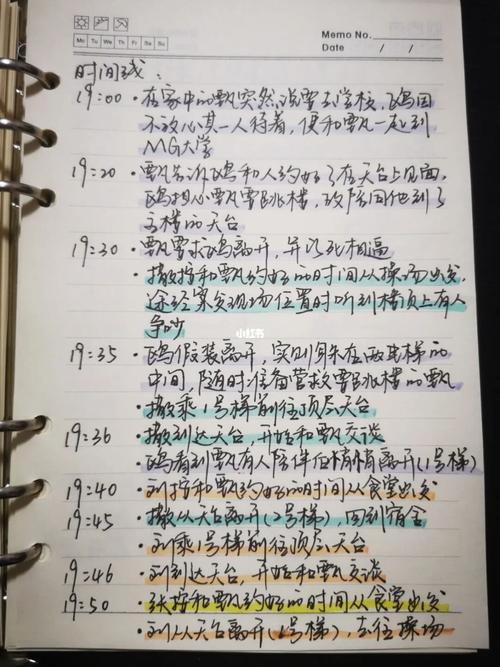 Memo No.
Mo Tu We Th Fr Sa Su
Date / /
时间线：
19:00 · 在家中的甄突然说要去学校，鸥因
不放心其一人待着，便和甄一起到
MG大学
19:20 · 甄告诉鸥和人约好了在天台上见面，
鸥担心甄要跳楼，故陪同他到了
主楼的天台
19:30 · 甄要求鸥离开，并以死相逼
· 撒按和甄约好的时间从操场出发，
途经案发现场位置时听到楼顶上有人
争吵
小红书
19:35 · 鸥假装离开，实则躲在两电梯的
中间，随时准备营救要跳楼的甄
· 撒乘1号梯前往顶层天台
19:36 · 撒到达天台，开始和甄交谈
· 鸥看到甄有人陪伴后悄悄离开(1号梯)
19:40 · 刘按和甄约好的时间从食堂出发
19:45 · 撒从天台离开(2号梯)，回到宿舍
· 刘乘1号梯前往顶层天台
19:46 · 刘到达天台，开始和甄交谈
19:50 · 张按和甄约好的时间从食堂出发
· 刘从天台离开(号梯)，去往操场